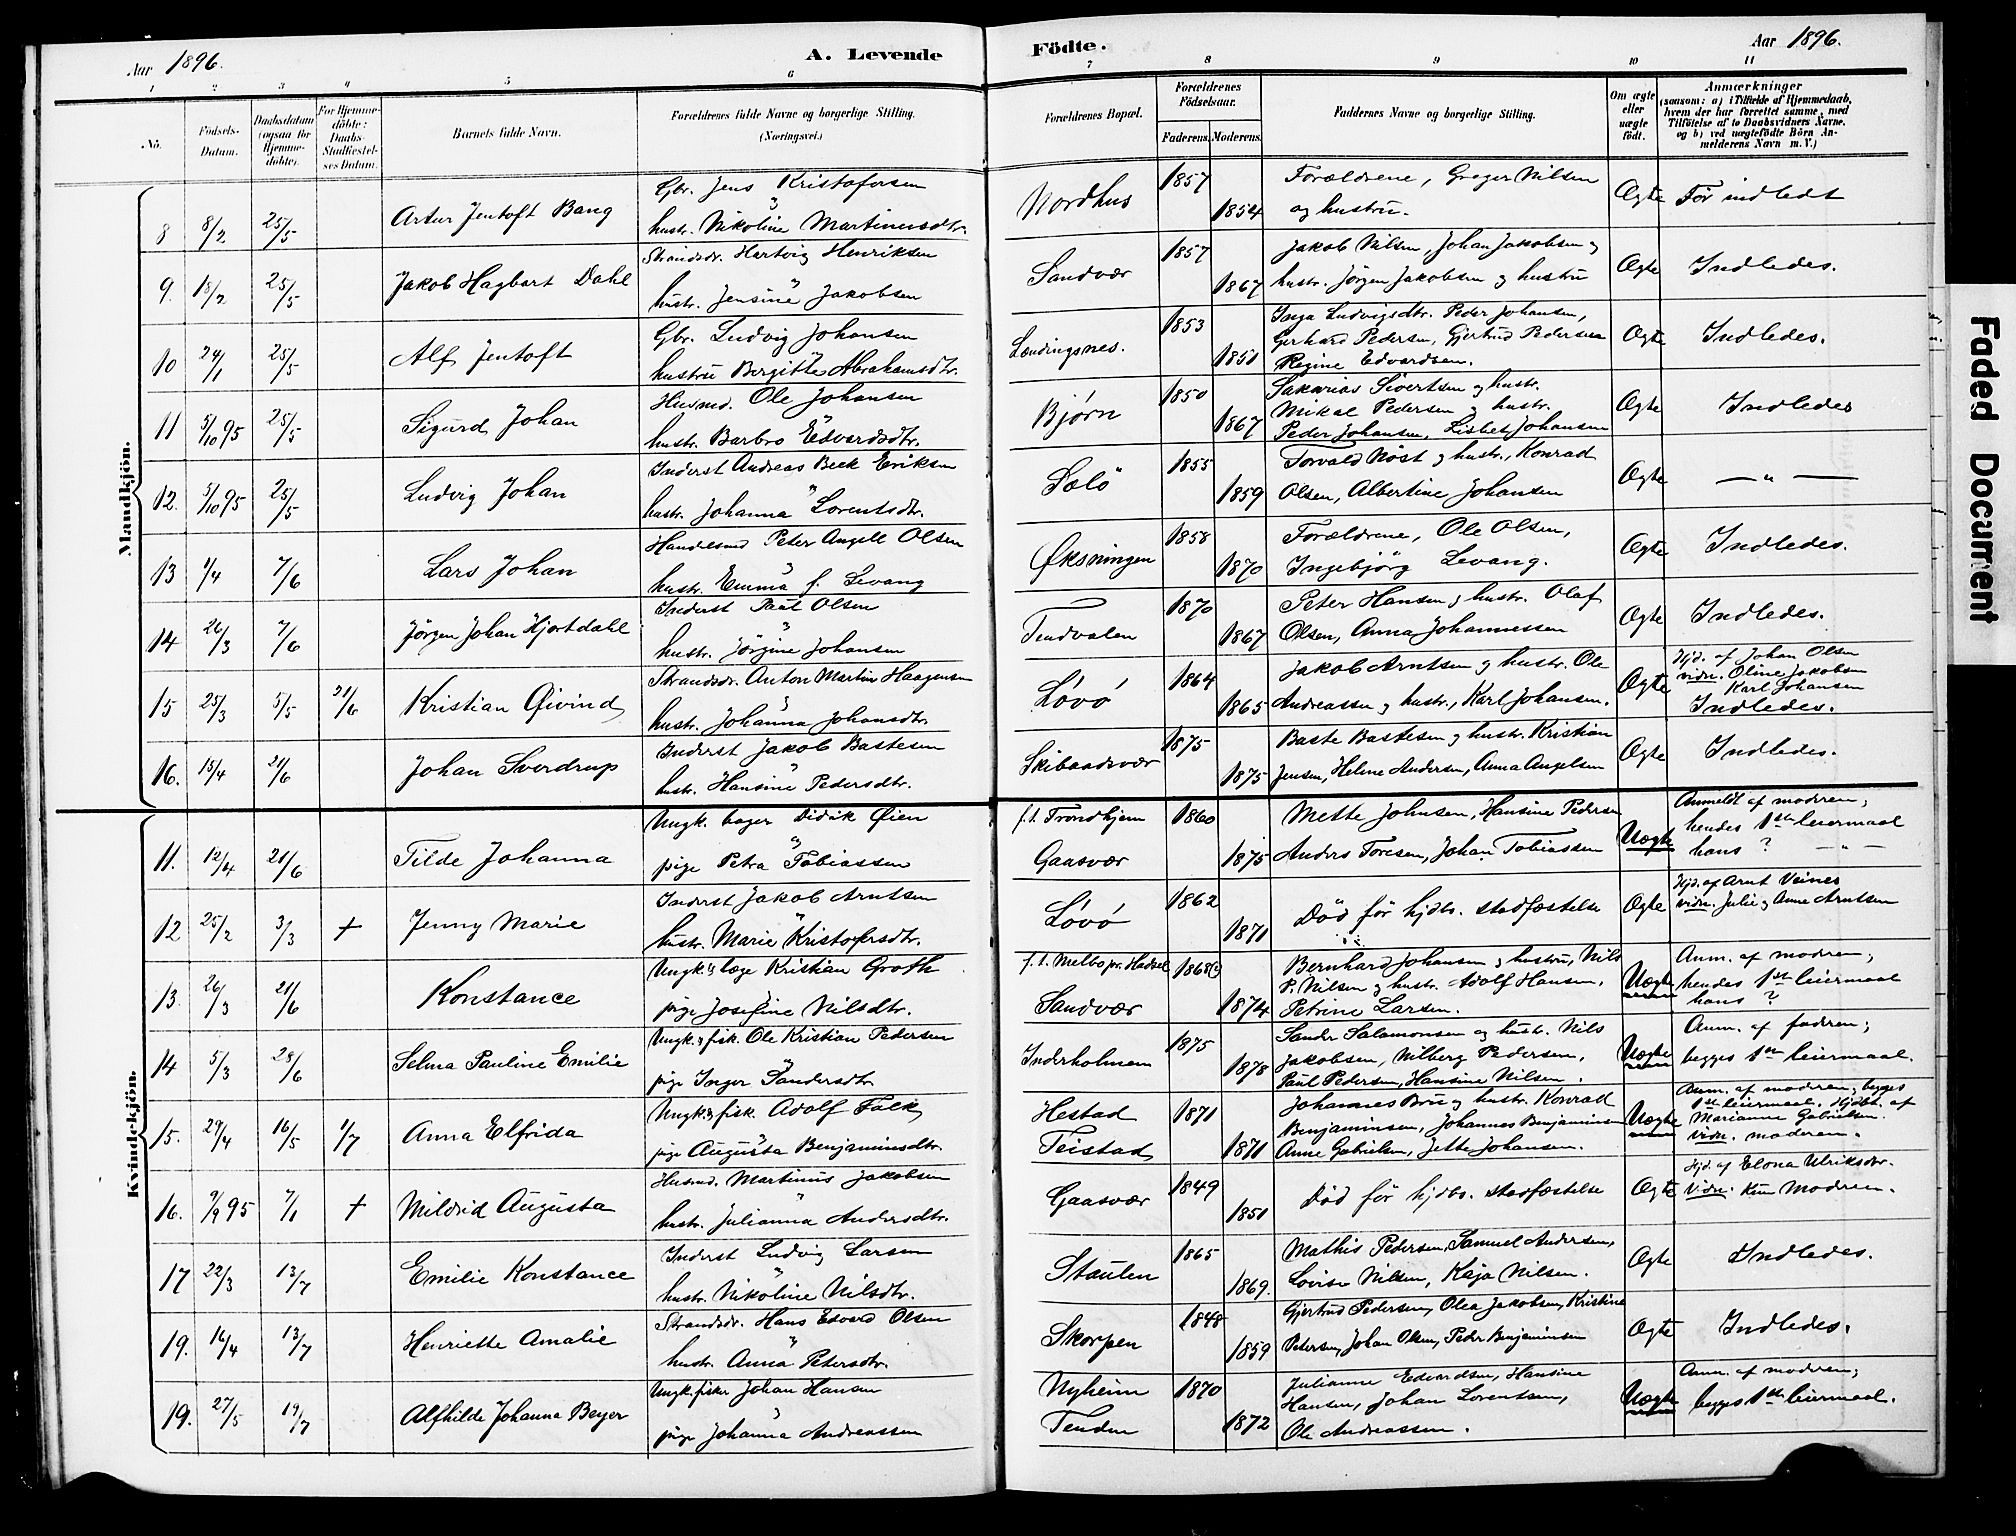 Aar 1896.
A. Levende
Födte.
Aar 1896.
1 2 3 4 5 6 7 8 9 10 11
No.
Födsels-Datum.
Daabsdatum (ogsaa for Hjemme-döbte).
For Hjemme-döbte: Daabs-Stadfæstel-ses Datum.
Barnets fulde Navn.
Forældrenes fulde Navne og borgerlige Stilling. (Næringsvei.)
Forældrenes Bopæl.
Forældrenes Födselsaar.
Faderens. Moderens.
Faddernes Navne og borgerlige Stilling.
Om ægte eller uægte födt.
Anmærkninger (saasom: a) i Tilfælde af Hjemmedaab, hvem der har forrettet samme, med Tilföielse af to Daabsvidners Navne, og b) ved uægtefödte Börn Anmelderens Navn m. V.)
Mandkjön.
8 8/2 25/5 Artur Jentoft Bang
Gbr. Jens Kristofersen
hustr. Nikoline Martinusdtr.
Nordhus 1857 1854
Forældrene, Greger Nilsen
og hustru.
Ægte Før indledt
9. 18/2 25/5 Jakob Hagbart Dahl
Strandsdr. Hartvig Henriksen
hustr. Jensine Jakobsen
Sandvær 1857 1867
Jakob Nilsen, Johan Jakobsen og
hustr. Jørgen Jakobsen og hustru
Ægte Indledes.
10 24/1 25/5 Alf Jentoft
Gbr. Ludvig Johansen
hustru Bergitte Abrahamsdtr.
Lændingsnes. 1853 1851
Inga Ludvigsdtr. Peder Johansen,
Gerhard Pedersen, Gjertrud Pedersen
Regine Edvardsen.
Ægte Indledes.
11 5/10 95 25/5 Sigurd Johan
Husmd. Ole Johansen
hustr. Barbro Edvardsdtr.
Bjørn 1850 1867
Sakarias Sivertsen og hustr.
Mikal Pedersen og hustr.
Peder Johansen, Lisbet Johansen
Ægte Indledes
12. 5/10 95 25/5 Ludvig Johan
Inderst Andreas Beck Eriksen
hustr. Johanna Lorentsdtr.
Sølö 1855 1859
Torvald Nöst og hustr., Konrad
Olsen, Albertine Johansen
Ægte — " —
13 1/4 7/6 Lars Johan
Handelsmd Peter Angell Olsen
hustr. Emma f. Levang
Øksningen 1858 1870
Forældrene, Ole Olsen,
Ingebjörg Levang.
Ægte Indledes.
14 26/3 7/6 Jörgen Johan Hjortdahl
Inderst Paul Olsen
hustr. Jörgine Johansen
Tendvalen 1870 1867
Peter Hansen og hustr. Olaf
Olsen, Anna Johannessen
Ægte Indledes.
15 25/3 5/5 21/6 Kristian Øivind
Strandsdr. Anton Martin Haagensen
hustr. Johanna Johansdtr.
Løvø 1864 1865
Jakob Arntsen og hustr. Ole
Andreassen og hustr., Karl Johansen.
Ægte Hjd. af Johan Olsen
vidn. Oline Jakobsen
Karl Johansen
Indledes.
16. 15/4 21/6 Johan Sverdrup
Inderst Jakob Bastesen
hustr. Hansine Pedersdtr.
Skibaadsvær 1875 1875
Baste Bastesen og hustr. Kristian
Jensen, Heline Andersen, Anna Angelsen
Ægte Indledes.
Kvindekjön.
11. 12/4 21/6 Tilde Johanna
Ungk. bager Didrik Øien
pige Petra Tobiassen
f. t. Trondhjem
Gaasvær 1860 1875
Mette Johnsen, Hansine Pedersen
Anders Toresen, Johan Tobiassen
Uægte Anmeldt af modren;
hendes 1ste leiermaal
hans ? — " —
12 25/2 3/3 + Jenny Marie
Inderst Jakob Arntsen
hustr. Marie Kristofersdtr.
Løvø 1862 1871
Död för hjdb. stadfæstelse
Ægte Hjd. af Arnt Veines
vidn. Julie og Anne Arntsen
13. 26/3 21/6 Konstance
Ungk. og læge Kristian Groth
pige Josefine Nilsdtr.
f. t. Melbo pr. Hadsel
Sandvær 1868(?) 1874
Bernhard Johansen og hustru, Nils
P. Nilsen og hustr. Adolf Hansen,
Petrine Larsen.
Uægte Anm. af modren;
hendes 1ste leiermaal
hans ?
14 5/3 28/6 Selma Pauline Emilie
Ungk. og fisk. Ole Kristian Pedersen
pige Inger Sandersdtr
Inderholmen 1875 1878
Sander Salamonsen og hustr. Nils
Jakobsen, Nilberg Pedersen,
Paul Pedersen, Hansine Nilsen.
Uægte Anm. af fadren;
begges 1ste leiermaal.
15. 29/4 16/5 1/7 Anna Elfrida
Ungk. og fisk. Adolf Falk
pige Augusta Benjaminsdtr.
Hestad
Teistad 1871 1871
Johannes Bru og hustr. Konrad
Benjaminsen, Johannes Benjaminsen
Anne Gabrielsen, Jette Johansen.
Uægte Anm. af modren; begges
1ste leiermaal. Hjdb. af
Marianne Gabrielsen
vidn. moderen.
16. 9/9 95 7/1 + Mildrid Augusta
Husmd. Martinus Jakobsen
hustr. Julianna Andersdtr.
Gaasvær 1849 1851
Död för hjdb. stadfæstelse
Ægte Hjd. af Elona Ulriksdtr.
Vidn. kun Modren.
17 22/3 13/7 Emilie Konstance
Inderst Ludvig Larsen
hustr. Nikoline Nilsdtr.
Staulen 1865 1869.
Mathis Pedersen, Samuel Andersen,
Lovise Nilsen, Kaja Nilsen.
Ægte Indledes.
19. 16/4 13/7 Henriette Amalie
Strandsdr. Hans Edvard Olsen
hustr. Anna Petersdtr.
Skorpen 1848 1859
Gjertrud Pedersen, Olea Jakobsen, Kristine
Petersen, Johan Olsen, Peder Benjaminsen
Ægte Indledes.
19. 27/5 19/7 Alfhilde Johanna Beyer
Ungk. fisker Johan Hansen
pige Johanna Andreassen
Nyheim
Tenden 1870 1872
Julianne Edvardsen, Hansine
Hansen, Johan Lorentsen,
Ole Andreassen.
Uægte Anm. af modren;
begges 1ste leiermaal.
Faded Document